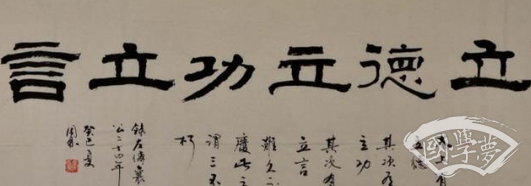 立德立功立言
太上有
立德
其次有
立功
其次有
立言
雖久不
廢此之
謂三不
朽
錄左傳襄
公二十四年
癸巳夏
國學夢